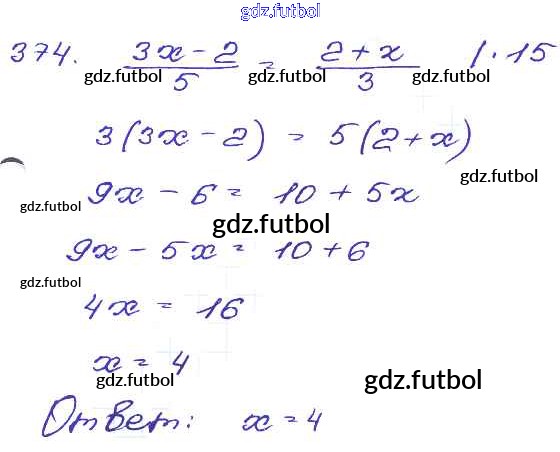 gdz.futbol
374. (3x - 2)/5 = (2 + x)/3 | · 15
gdz.futbol gdz.futbol gdz.futbol
3(3x - 2) = 5(2 + x)
gdz.futbol
9x - 6 = 10 + 5x
gdz.futbol
gdz.futbol
9x - 5x = 10 + 6
gdz.futbol
4x = 16
x = 4
gdz.futbol gdz.futbol
Ответ: x = 4